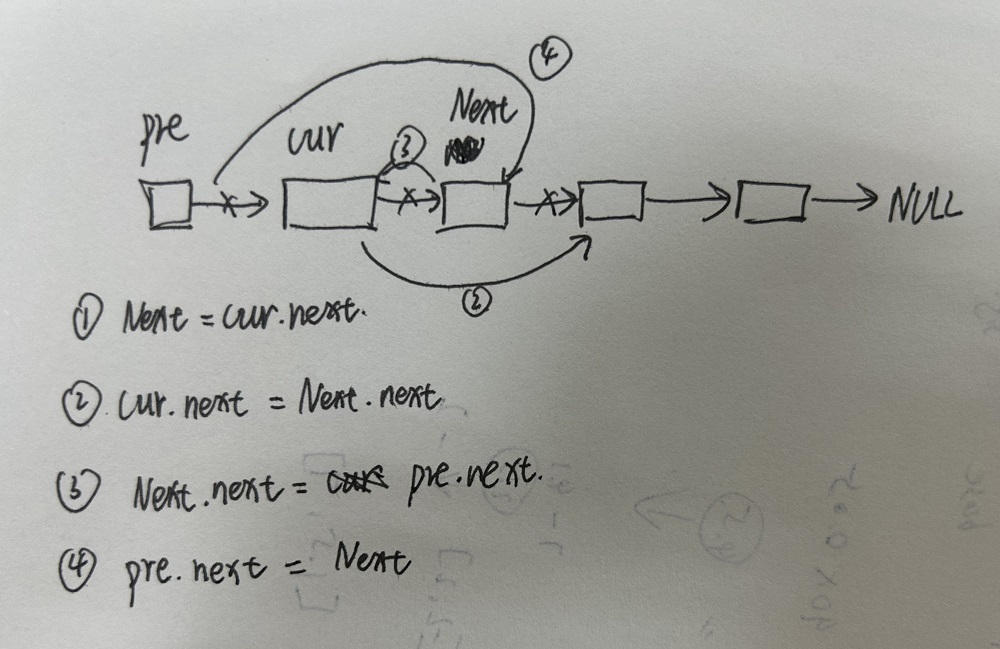 ④
Next
pre
cur
③
NULL
②
① Next = cur.next.
② cur.next = Next.next
③ Next.next = pre.next.
④ pre.next = Next